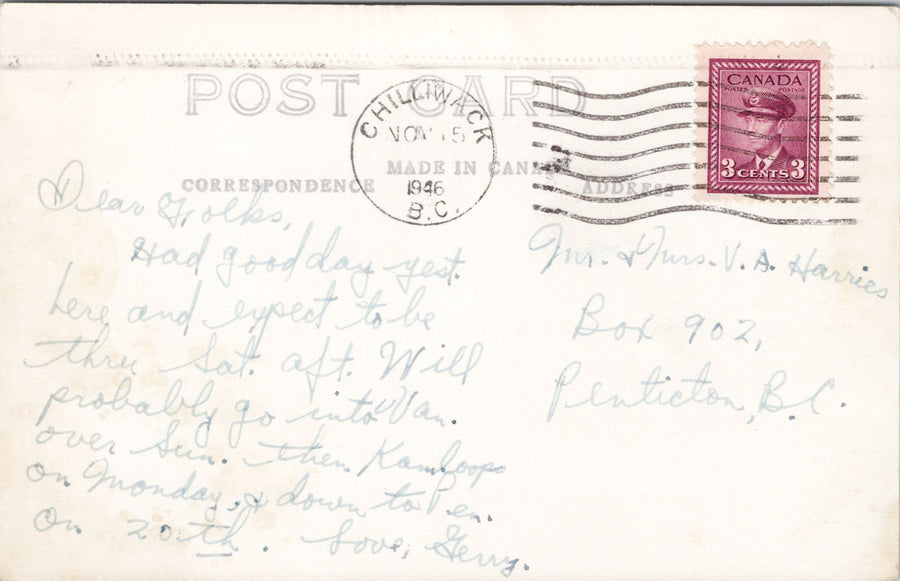 POST CARD
CHILLIWACK
NOV 15
1946
B.C.
CANADA
POSTES POSTAGE
3 CENTS 3
MADE IN CANADA
CORRESPONDENCE
ADDRESS
Dear Folks,
Had good day yest.
here and expect to be
thru Sat. aft. Will
probably go into Van.
over Sun. then Kamloops
on Monday, & down to Pen.
on 20th. Love, Gerry.
Mr. & Mrs. V. A. Harries
Box 902,
Penticton, B.C.